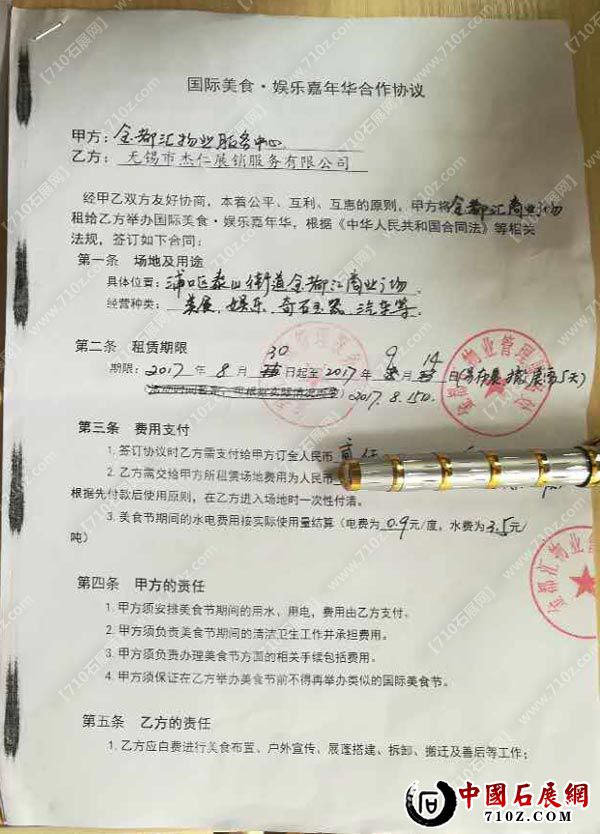 国际美食·娱乐嘉年华合作协议
甲方：金都汇物业服务中心
乙方：无锡市杰仁展销服务有限公司
经甲乙双方友好协商，本着公平、互利、互惠的原则，甲方将金都汇商业广场
租给乙方举办国际美食·娱乐嘉年华，根据《中华人民共和国合同法》等相关
法规，签订如下合同：
第一条 场地及用途
具体位置：浦口区泰山街道金都汇商业广场
经营种类：美食、娱乐、奇石玉器、汽车等
第二条 租赁期限
30 9 14
期限：2017年8月 日起至2017年 月 日(另存展撤展需5天)
2017.8.15
第三条 费用支付
1.签订协议时乙方需支付给甲方订金人民币
2.乙方需交给甲方所租赁场地费用为人民币
根据先付款后使用原则，在乙方进入场地时一次性付清。
3.美食节期间的水电费用按实际使用量结算（电费为0.9元/度，水费为3.5元/
吨）
第四条 甲方的责任
1.甲方须安排美食节期间的用水、用电，费用由乙方支付。
2.甲方须负责美食节期间的清洁卫生工作并承担费用。
3.甲方须负责办理美食节方面的相关手续包括费用。
4.甲方须保证在乙方举办美食节前不得再举办类似的国际美食节。
第五条 乙方的责任
1.乙方应自费进行美食布置、户外宣传、展蓬搭建、拆卸、搬迁及善后等工作；
中國石展網
710z.com